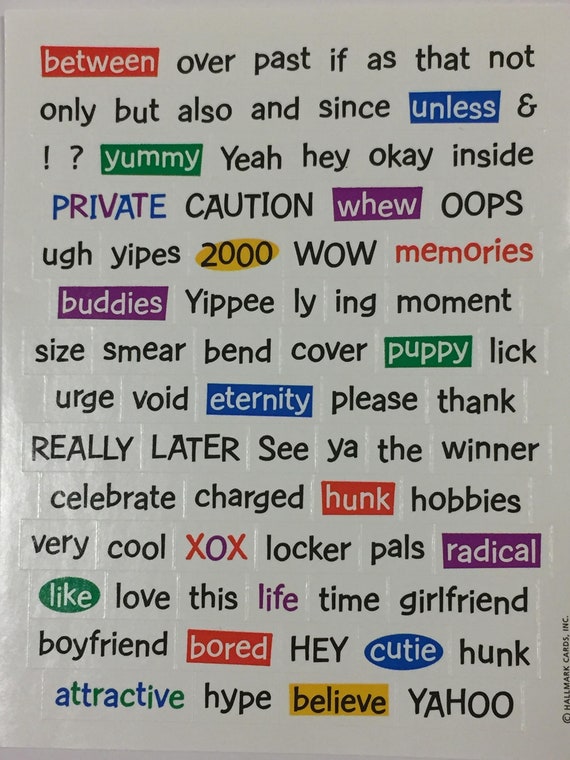 between over past if as that not
only but also and since unless &
! ? yummy Yeah hey okay inside
PRIVATE CAUTION whew OOPS
ugh yipes 2000 WOW memories
buddies Yippee ly ing moment
size smear bend cover puppy lick
urge void eternity please thank
REALLY LATER See ya the winner
celebrate charged hunk hobbies
very cool XOX locker pals radical
like love this life time girlfriend
boyfriend bored HEY cutie hunk
attractive hype believe YAHOO
© HALLMARK CARDS, INC.